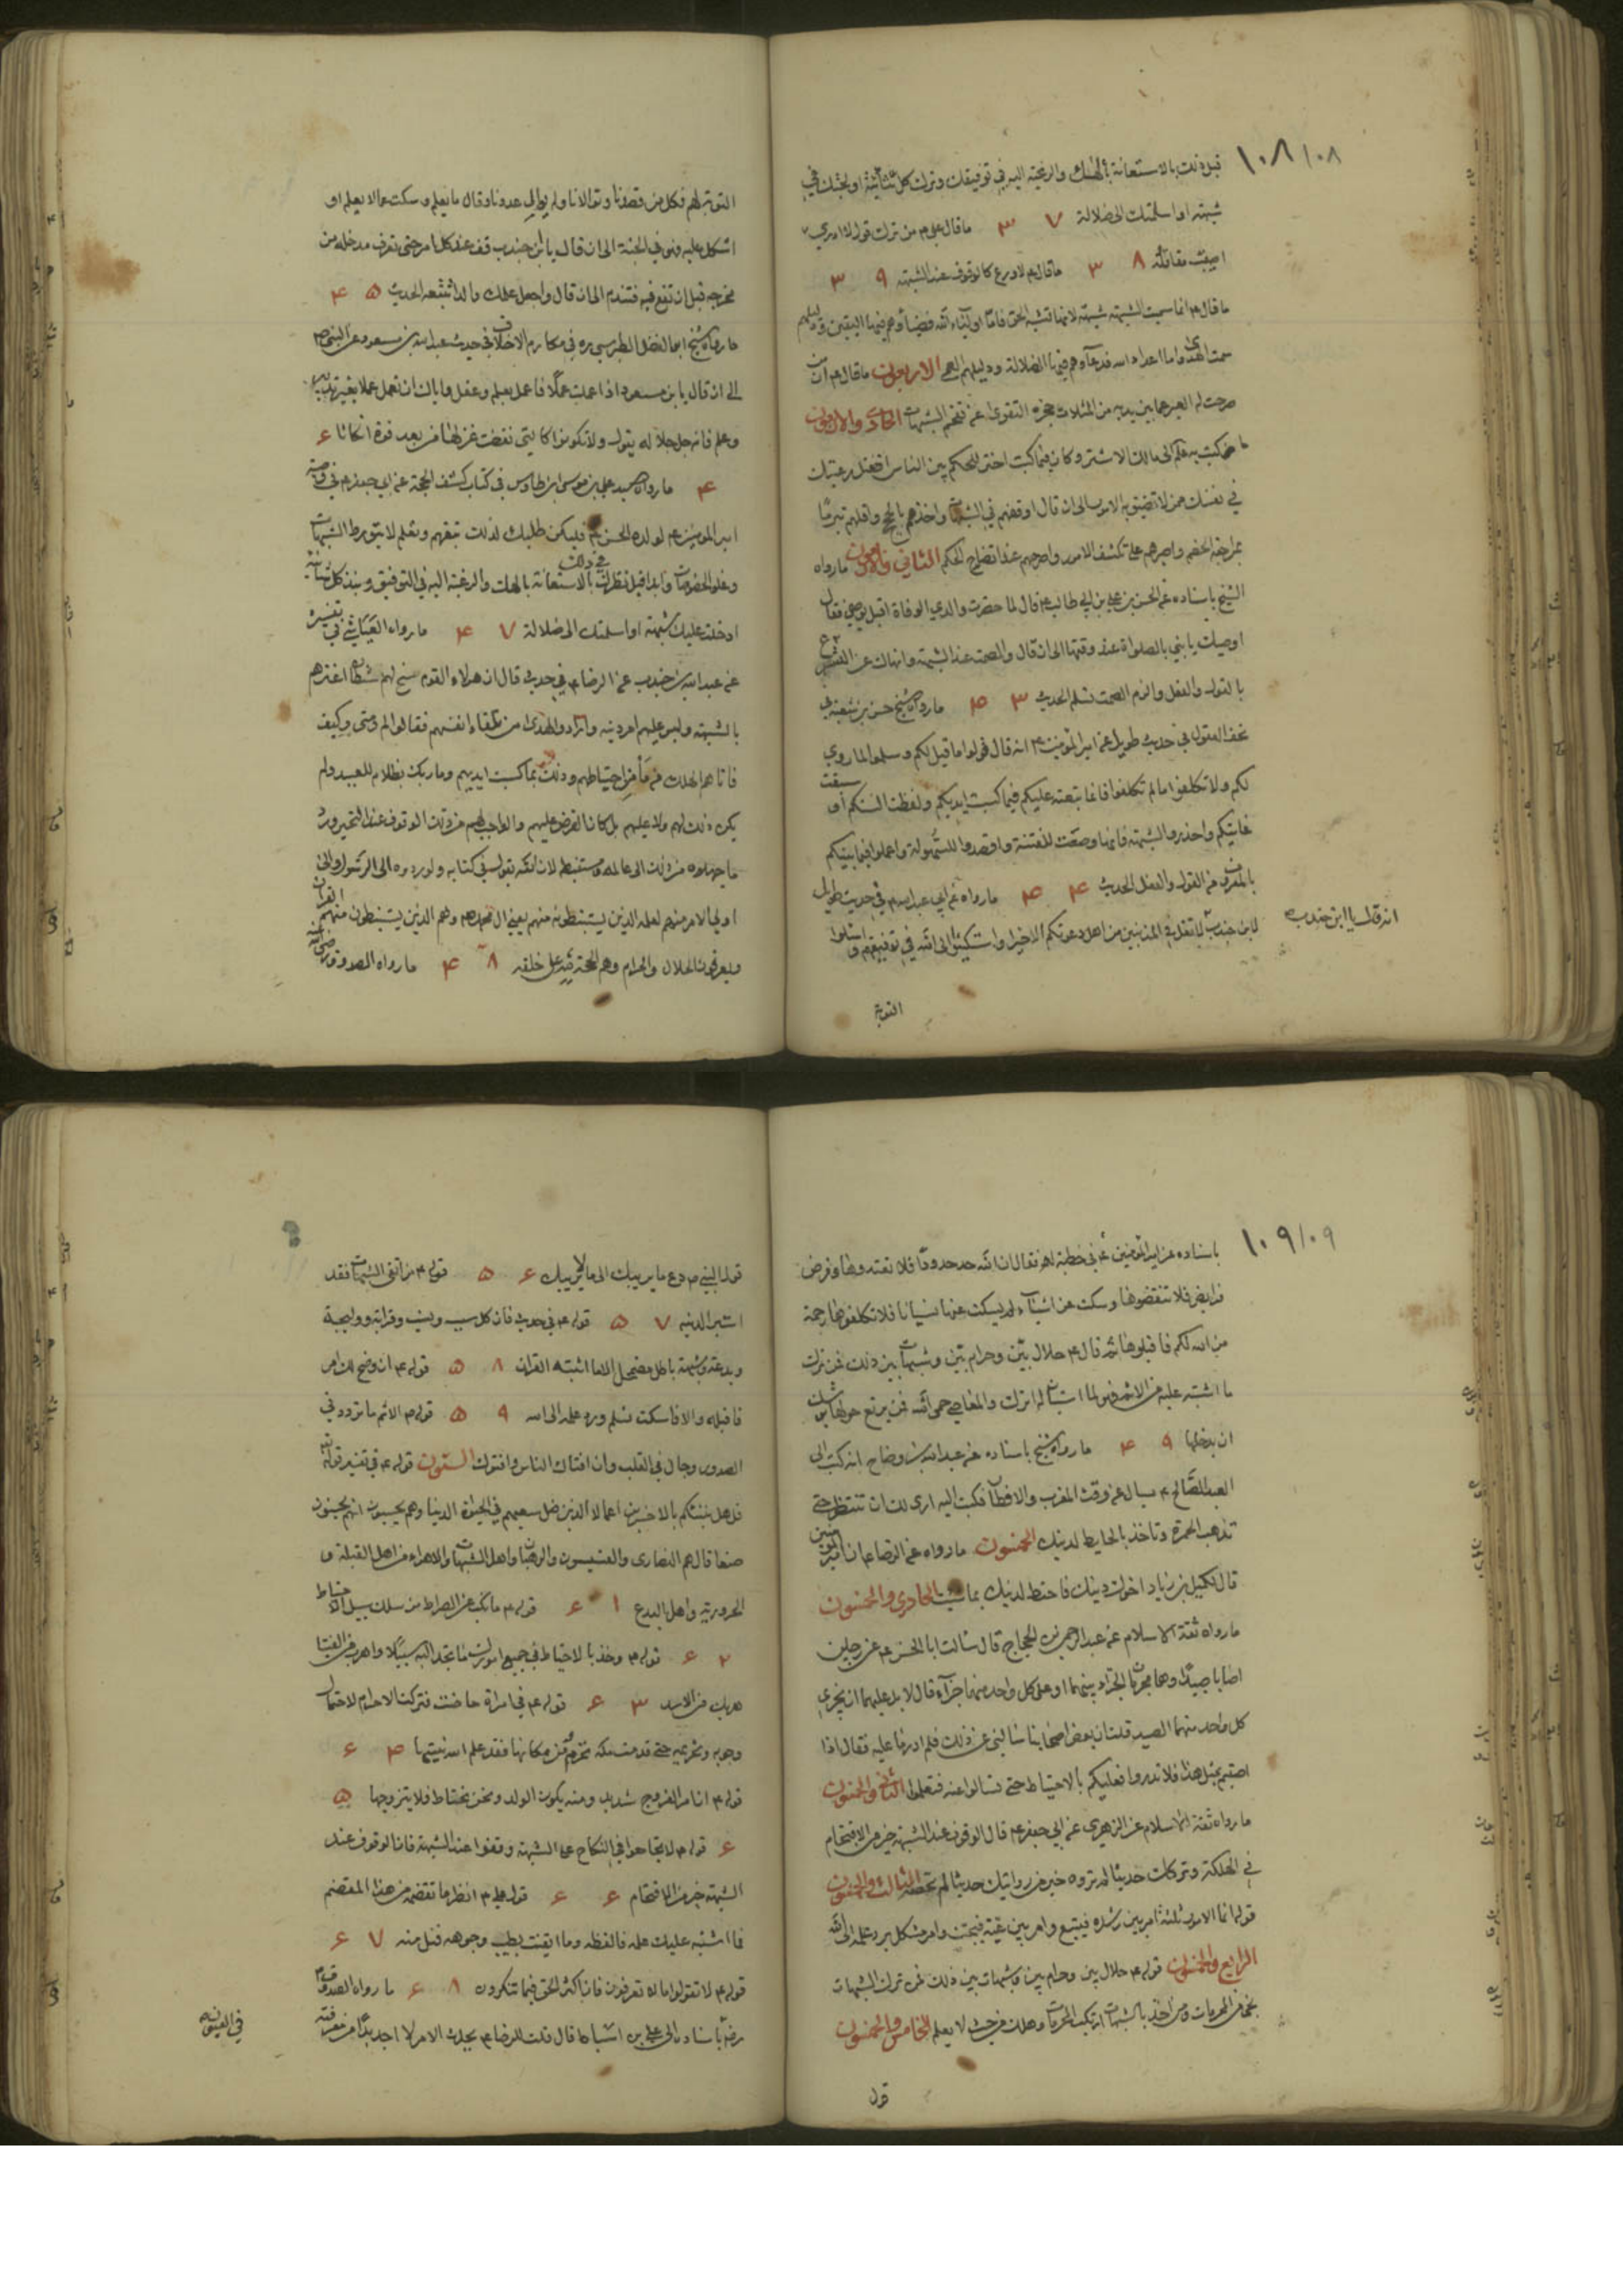 ١٠٨ / ٠٨
قبل ذلك بالاستعانة بالهك والرغبة اليه في توفيقك وترك كل شائبة اولجتك في
شبهة او اسلمتك الى ضلالة ٣٧ ما قال علي ع من ترك قول لا ادري
اصيبت مقاتله ٣٨ ما قال ع لا ورع كالوقوف عند الشبهة ٣٩
ما قال ع انما سميت الشبهة شبهة لانها تشبه الحق فاما اولياء الله فضياؤهم فيها اليقين ودليلهم
سمت الهدى واما اعداء الله فدعاؤهم فيها الضلالة ودليلهم العمى الاربعون ما قال ع ان من
صرحت له العبر عما بين يديه من المثلات حجزه التقوى عن تقحم الشبهات الحادي والاربعون
ما كتبه ع الى مالك الاشتر وكان فيما كتب اختر للحكم بين الناس افضل رعيتك
في نفسك ممن لا تضيق به الامور الى ان قال اوقفهم في الشبهات واخذهم بالحجج واقلهم تبرما
بمراجعة الخصم واصبرهم على تكشف الامور واصرمهم عند اتضاح الحكم الثاني والاربعون ما رواه
الشيخ باسناده عن الحسن بن علي بن ابي طالب ع قال لما حضرت والدي الوفاة اقبل يوصي فقال
اوصيك يا بني بالصلوة عند وقتها الى ان قال والصمت عند الشبهة وانهاك عن التسرع
بالقول والفعل والزم الصمت تسلم الحديث ٤٣ ما رواه الشيخ حسن بن شعبة في
تحف العقول في حديث طويل عن امير المؤمنين ع انه قال قولوا ما قيل لكم وسلموا لما روي
لكم ولا تكلفوا ما لم تكلفوا فانما تبعته عليكم فيما كسبت ايديكم ولفظت السنتكم او سبقت
غايتكم واحذروا الشبهة فانها وضعت للفتنة واقصدوا السهولة واعملوا فيما بينكم
بالمعروف من القول والفعل الحديث ٤٤ ما رواه عن ابي عبد الله ع في حديث طويل
لابن جندب لا تقل في المذنبين من اهل دعوتكم الا خيرا واستكينوا الى الله في توفيقهم واسئلوا
انه قال يا ابن جندب
التوبة
التوبة لهم فكل من قصدنا وتوالانا ولم يوال عدونا وقال ما يعلم وسكت عما لا يعلم او
اشكل عليه فهو في الجنة الى ان قال يا ابن جندب قف عند كل امر حتى تعرف مدخله من
مخرجه قبل ان تقع فيه فتندم الى ان قال واجعل علمك والدا تتبعه الحديث ٤٥
ما رواه الشيخ ابو الفضل الطبرسي ره في مكارم الاخلاق في حديث عبد الله بن مسعود عن النبي ص
الى ان قال يا بن مسعود اذا عملت عملا فاعمل بعلم وعقل واياك ان تعمل عملا بغير تدبير
وعلم فانه جل جلاله يقول ولا تكونوا كالتي نقضت غزلها من بعد قوة انكاثا ٤٦
ما رواه السيد علي بن موسى بن طاوس في كتاب كشف المحجة عن ابي جعفر ع في وصية
امير المؤمنين ع لولده الحسن ع فليكن طلبك لذلك بتفهم وتعلم لا بتورط الشبهات
وعلو الخصومات وابدا قبل نظرك في ذلك بالاستعانة بالهك والرغبة اليه في التوفيق ونبذ كل شائبة
ادخلت عليك شبهة او اسلمتك الى ضلالة ٤٧ ما رواه العياشي في تفسيره
عن عبد الله بن جندب عن الرضا ع في حديث قال ان هؤلاء القوم سنح لهم شيطان اغترهم
بالشبهة ولبس عليهم امر دينه وارادوا الهدى من تلقاء انفسهم فقالوا لم ومتى وكيف
فاتاهم الهلك من مأمن احتياطهم وذلك بما كسبت ايديهم وما ربك بظلام للعبيد ولم
يكن ذلك لهم ولا عليهم بل كان الفرض عليهم والواجب لهم من ذلك الوقوف عند التحير ورد
ما جهلوه من ذلك الى عالمه ومستنبطه لان الله يقول في كتابه ولو ردوه الى الرسول والى
اولي الامر منهم لعلمه الذين يستنبطونه منهم يعني ال محمد وهم الذين يستنبطون منهم القران
ويعرفون الحلال والحرام وهم الحجة لله على خلقه ٤٨ ما رواه الصدوق رضي الله
١٠٩ / ٠٩
باسناده عن امير المؤمنين ع في خطبة له فقال ان الله حد حدودا فلا تعتدوها وفرض
فرايض فلا تنقضوها وسكت عن اشياء لم يسكت عنها نسيانا فلا تكلفوها رحمة
من الله لكم فاقبلوها ثم قال ع حلال بين وحرام بين وشبهات بين ذلك فمن ترك
ما اشتبه عليه من الاثم فهو لما استبان له اترك والمعاصي حمى الله فمن يرتع حولها يوشك
ان يدخلها ٤٩ ما رواه الشيخ باسناده عن عبد الله بن وضاح انه كتب الى
العبد الصالح ع يسال عن وقت المغرب والافطار فكتب اليه ارى لك ان تنتظر حتى
تذهب الحمرة وتاخذ بالحايط لدينك الخمسون ما رواه عن الرضا ع ان امير المؤمنين
قال لكميل بن زياد اخوك دينك فاحتط لدينك بما شئت الحادي والخمسون
ما رواه ثقة الاسلام عن عبد الرحمن بن الحجاج قال سالت ابا الحسن ع عن رجلين
اصابا صيدا وهما محرمان الجزاء بينهما او على كل واحد منهما جزاء قال لا بل عليهما ان يجزي
كل واحد منهما الصيد قلت ان بعض اصحابنا سالني عن ذلك فلم ادر ما عليه فقال اذا
اصبتم بمثل هذا فلا تدروا فعليكم بالاحتياط حتى تسالوا عنه فتعلموا الثاني والخمسون
ما رواه ثقة الاسلام عن الزهري عن ابي جعفر ع قال الوقوف عند الشبهة خير من الاقتحام
في الهلكة وتركك حديثا لم تروه خير من روايتك حديثا لم تحصه الثالث والخمسون
قوله انما الامور ثلثة امر بين رشده فيتبع وامر بين غيه فيجتنب وامر مشكل يرد علمه الى الله
الرابع والخمسون قوله ع حلال بين وحرام بين وشبهات بين ذلك فمن ترك الشبهات
نجا من المحرمات ومن اخذ بالشبهات ارتكب المحرمات وهلك من حيث لا يعلم الخامس والخمسون
قول
قول النبي ص دع ما يريبك الى ما لا يريبك ٥٦ قوله ع من اتقى الشبهات فقد
استبرا لدينه ٥٧ قوله ع في حديث فان كل سبب ونسب وقرابة ووليجة
وبدعة وشبهة باطل مضمحل الا ما اثبته القران ٥٨ قوله ع ان وضح لك امر
فاقبله والا فاسكت تسلم ورد علمه الى الله ٥٩ قوله ع الاثم ما تردد في
الصدور وجال في القلب وان افتاك الناس وافتوك الستون قوله ع في تفسير قوله تع
قل هل ننبئكم بالاخسرين اعمالا الذين ضل سعيهم في الحيوة الدنيا وهم يحسبون انهم يحسنون
صنعا قال هم النصارى والقسيسون والرهبان واهل الشبهات والاهواء من اهل القبلة و
الحرورية واهل البدع ٦١ قوله ع ما نكب عن الصراط من سلك سبيل الاحتياط
٦٢ قوله ع وخذ بالاحتياط في جميع امورك ما تجد اليه سبيلا واهرب من الفتيا
هربك من الاسد ٦٣ قوله ع في امراة حاضت فتركت الاحرام لاحتمال
وجوبه وتحريمه حتى قدمت مكة تحرم من مكانها فقد علم الله نيتها ٦٤
قوله ع ان امر الفروج شديد ومنه يكون الولد ونحن نحتاط فلا يتزوجها ٦٥
قوله ع لا تجامعوا في النكاح على الشبهة وقفوا عند الشبهة فان الوقوف عند
الشبهة خير من الاقتحام ٦٦ قوله علي ع انظر ما تقضمه من هذا المقضم
فما اشتبه عليك علمه فالفظه وما ايقنت بطيب وجوهه فنل منه ٦٧
قوله ع لا تقولوا ما لا تعرفون فان اكثر الحق فيما تنكرون ٦٨ ما رواه الصدوق
رضه باسناده الى علي بن اسباط قال قلت للرضا ع يحدث الامر لا اجد بدا من معرفته
في العيون